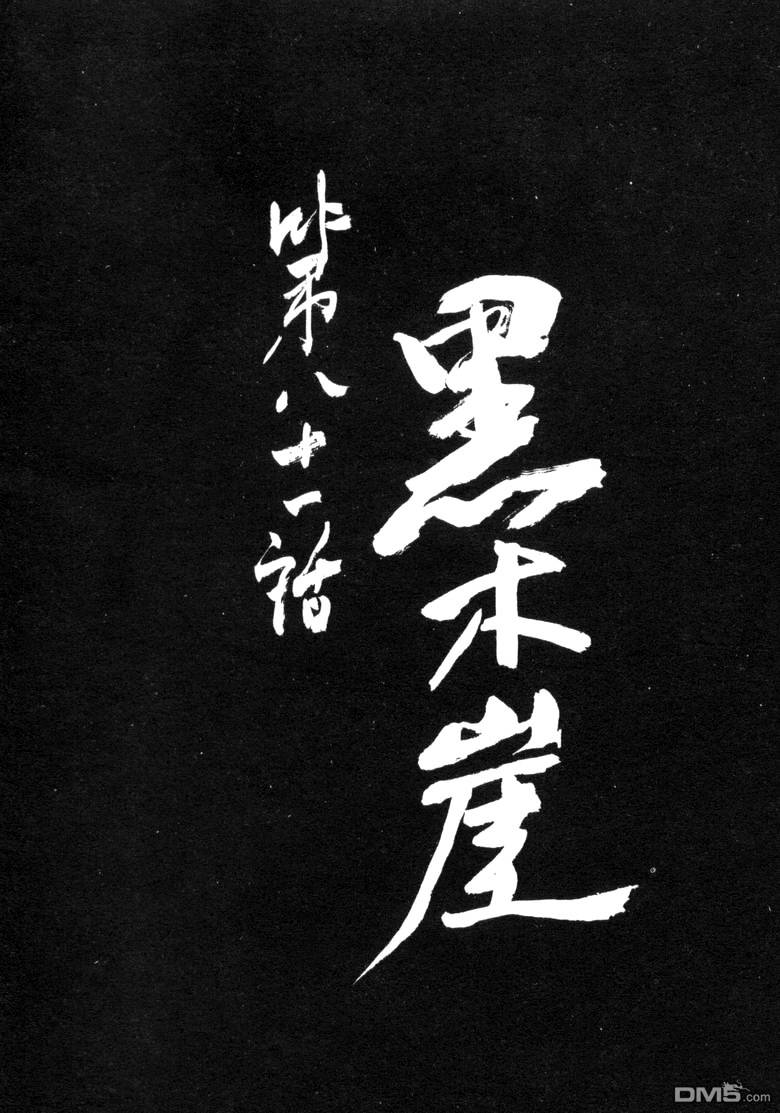 黑木崖
第八十一話
DM5.com